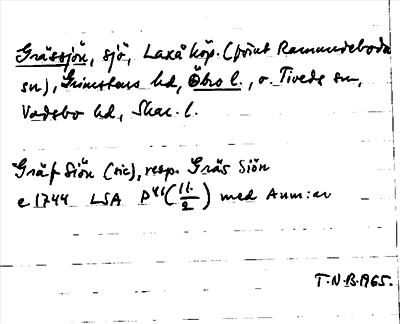 Grässjön, sjö, Laxå köp. (förut Ramundeboda
sn), Grimstens hd, Öbro l., o. Tiveds sn,
Vadsbo hd, Skar. l.
Gräs Siön (sic), resp. Gräs Siön
e 1744 LSA P41 (11/2) med Anm:ar
T.N.B. 1965.